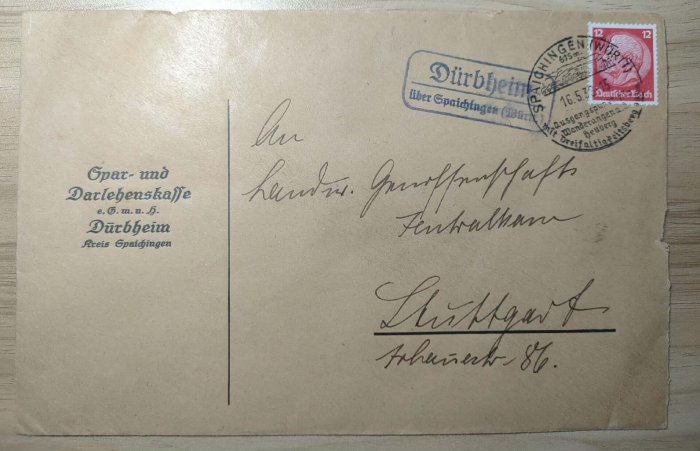 Spar- und
Darlehenskasse
e. G. m. u. H.
Dürbheim
Kreis Spaichingen
Dürbheim
über Spaichingen (Württ.)
SPAICHINGEN (WÜRTT)
675 m
16.5.3
Ausgangspun
Wanderungen
Heuberg
mit Dreifaltigkeitsberg
12 12
Deutsches Reich
An
Landw. Genossenschafts
Zentralkasse
Stuttgart
86.